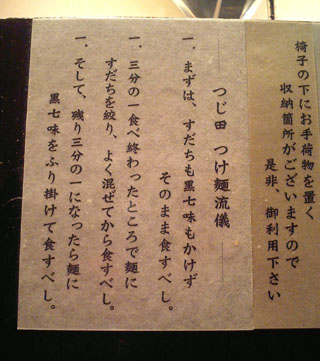 椅子の下にお手荷物を置く
収納箇所がございますので
是非、御利用下さい
つじ田 つけ麺流儀
一、まずは、すだちも黒七味もかけず
そのまま食すべし。
一、三分の一食べ終わったところで麺に
すだちを絞り、よく混ぜてから食すべし。
一、そして、残り三分の一になったら麺に
黒七味をふり掛けて食すべし。